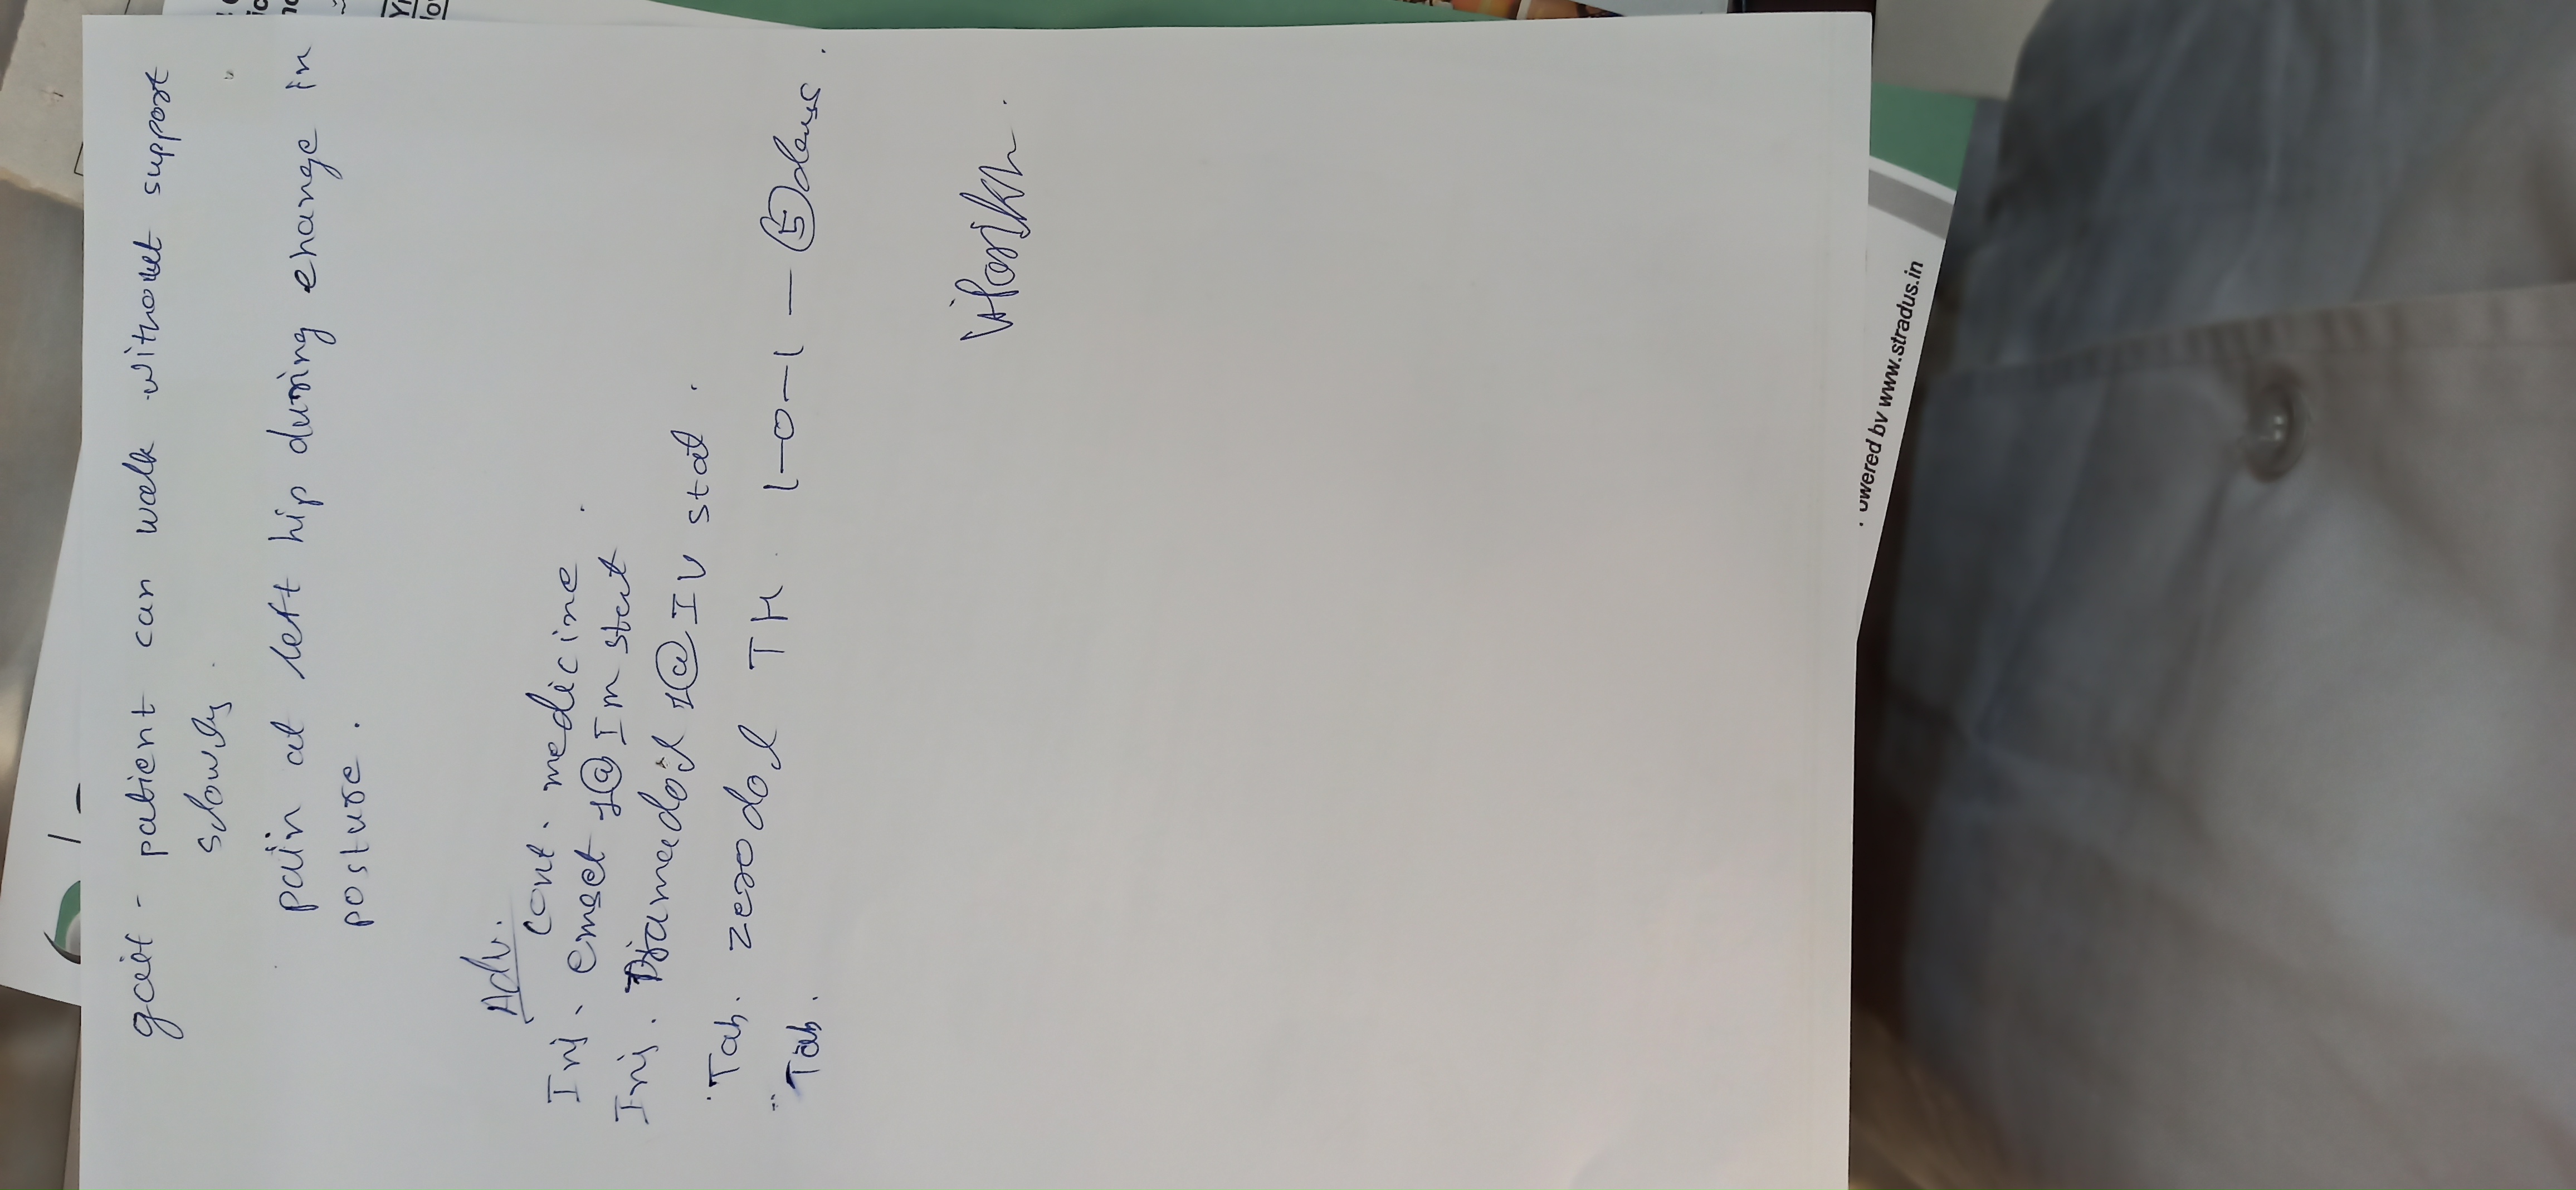 gait - patient can walk without support
slowly.
pain at left hip during change in
posture.
Adv.
cont. medicine
Inj. emset 1@ Im stat
Inj. 1@ IV stat.
Tab. zerodol TH. 1-0-1 - 5 days.
Tab.
Powered by www.stradus.in